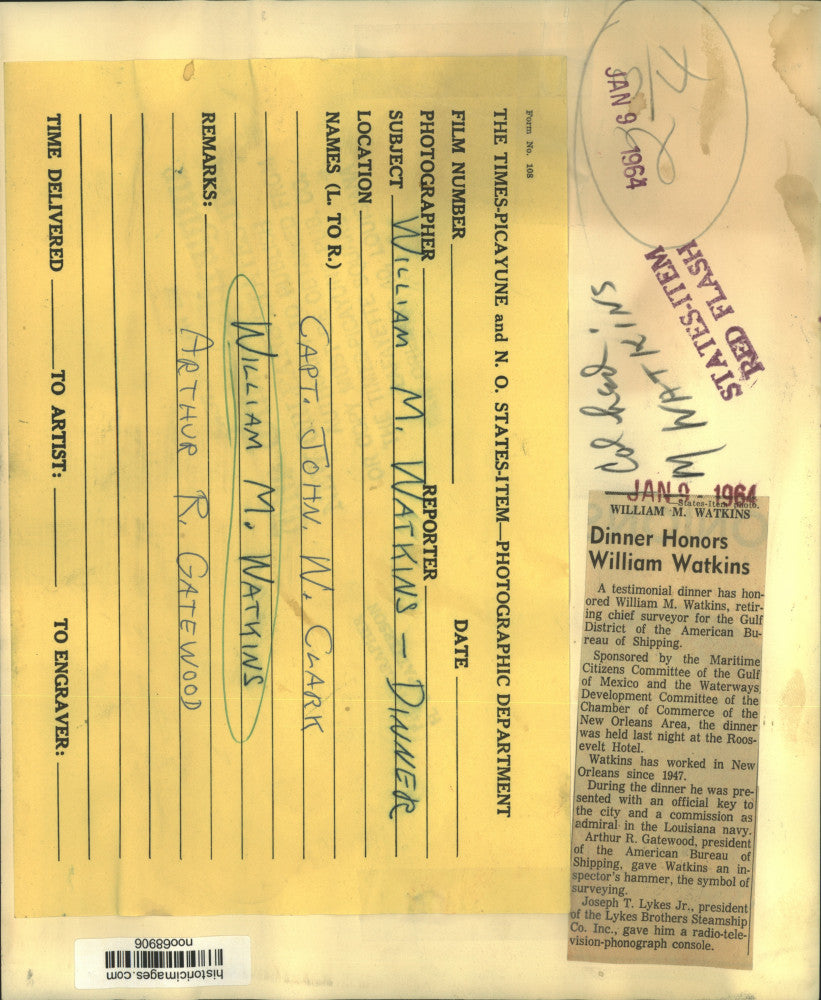 Form No. 108
THE TIMES-PICAYUNE and N. O. STATES-ITEM—PHOTOGRAPHIC DEPARTMENT
FILM NUMBER DATE
PHOTOGRAPHER REPORTER
SUBJECT WILLIAM M. WATKINS – DINNER
LOCATION
NAMES (L. TO R.)
CAPT. JOHN. W. CLARK
WILLIAM M. WATKINS
REMARKS:
ARTHUR R. GATEWOOD
TIME DELIVERED TO ARTIST: TO ENGRAVER:
JAN 9 1964
STATES-ITEM
RED FLASH
M WATKINS
JAN 9 - 1964
—States-Item photo.
WILLIAM M. WATKINS
Dinner Honors
William Watkins
A testimonial dinner has hon-
ored William M. Watkins, retir-
ing chief surveyor for the Gulf
District of the American Bu-
reau of Shipping.
Sponsored by the Maritime
Citizens Committee of the Gulf
of Mexico and the Waterways
Development Committee of the
Chamber of Commerce of the
New Orleans Area, the dinner
was held last night at the Roos-
evelt Hotel.
Watkins has worked in New
Orleans since 1947.
During the dinner he was pre-
sented with an official key to
the city and a commission as
admiral in the Louisiana navy.
Arthur R. Gatewood, president
of the American Bureau of
Shipping, gave Watkins an in-
spector's hammer, the symbol of
surveying.
Joseph T. Lykes Jr., president
of the Lykes Brothers Steamship
Co. Inc., gave him a radio-tele-
vision-phonograph console.
historicimages.com
noo68906